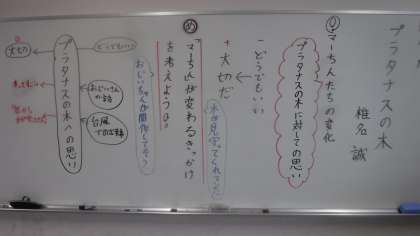 プラタナスの木
椎名 誠
マーちんたちの変化
プラタナスの木に対しての思い
－どうでもいい
＋大切だ
木が見守ってくれていた
め
マーちんが変わるきっかけ
を考えよう。
おじいちゃんが関係してそう
どうでもいい
おじいさんの話
台風での体験
プラタナスの木への思い
大切